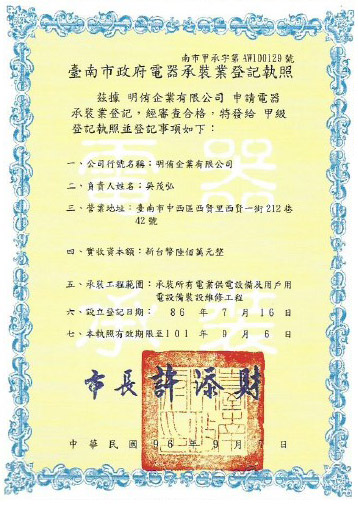 南市甲承字第AW100129號
臺南市政府電器承裝業登記執照
茲據 明侑企業有限公司 申請電器
承裝業登記，經審查合格，特發給 甲級
登記執照並登記事項如下：
一、公司行號名稱：明侑企業有限公司
二、負責人姓名：吳茂弘
三、營業地址：臺南市中西區西賢里西賢一街212巷
42號
四、實收資本額：新台幣陸佰萬元整
五、承裝工程範圍：承裝所有電業供電設備及用戶用
電設備裝設維修工程
六、設立登記日期： 86 年 7 月 16 日
七、本執照有效期限至101 年 9 月 6 日
市長 許添財
中華民國 96 年 9 月 7 日
電器
承裝